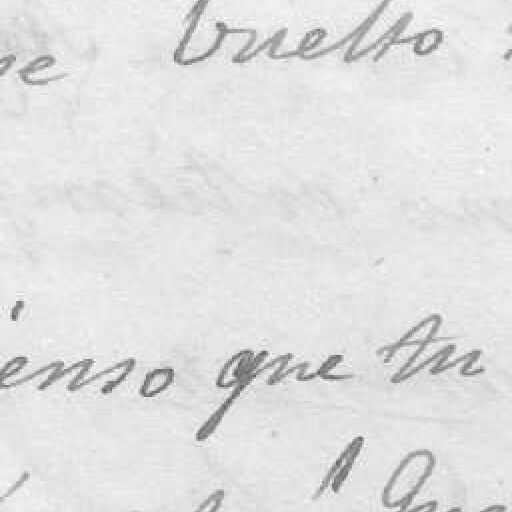 ne vuelto
ienso que tu